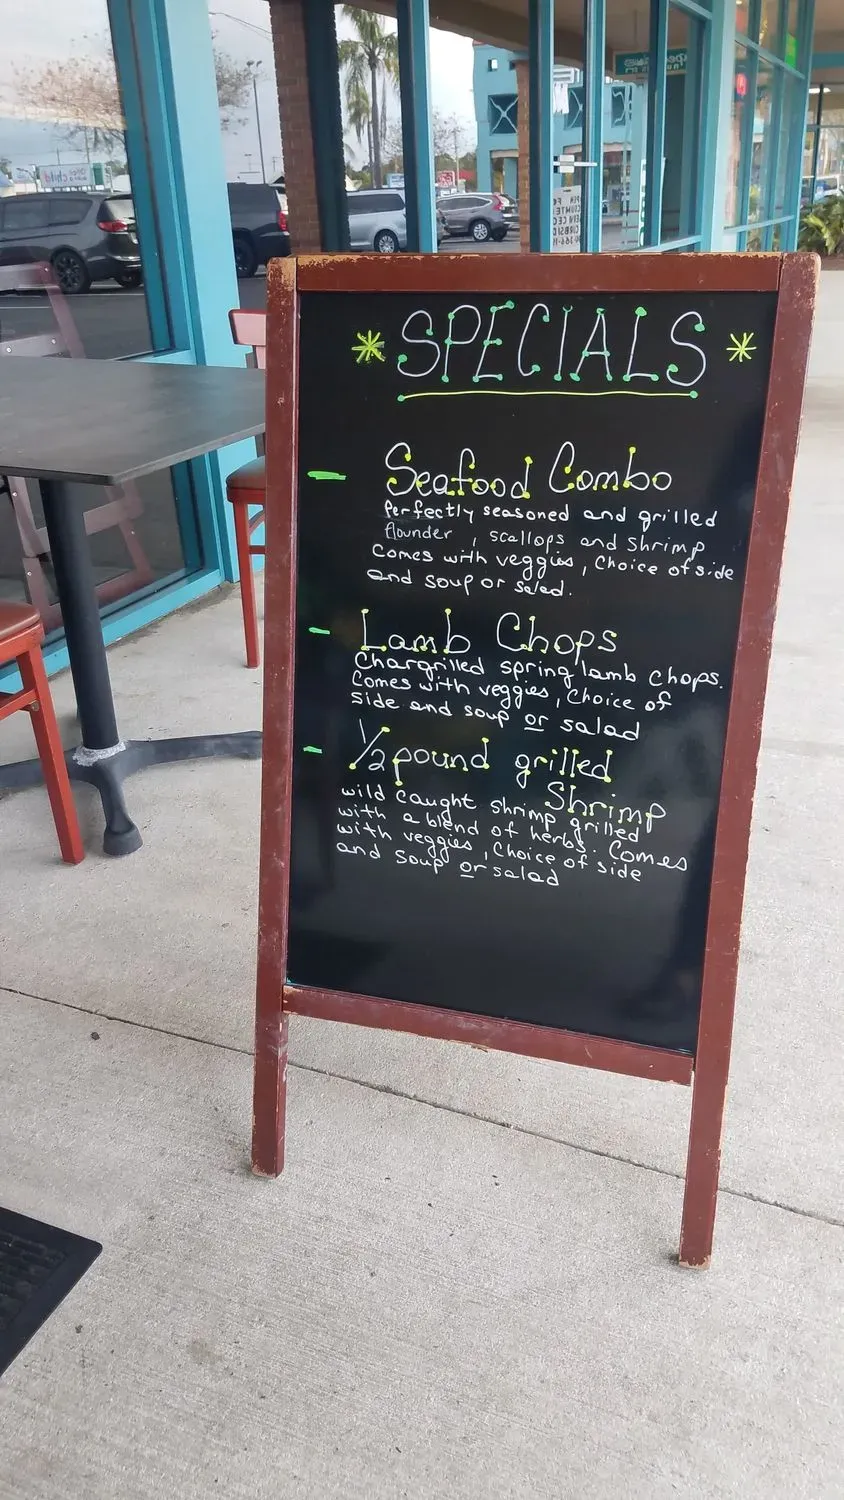 * SPECIALS *
- Seafood Combo
Perfectly seasoned and grilled
flounder, scallops and shrimp
comes with veggies, Choice of side
and soup or salad.
- Lamb Chops
Chargrilled spring lamb chops.
Comes with veggies, Choice of
side and soup or salad
- 1/2 pound grilled
Shrimp
wild caught shrimp grilled
with a blend of herbs. Comes
with veggies, Choice of side
and soup or salad